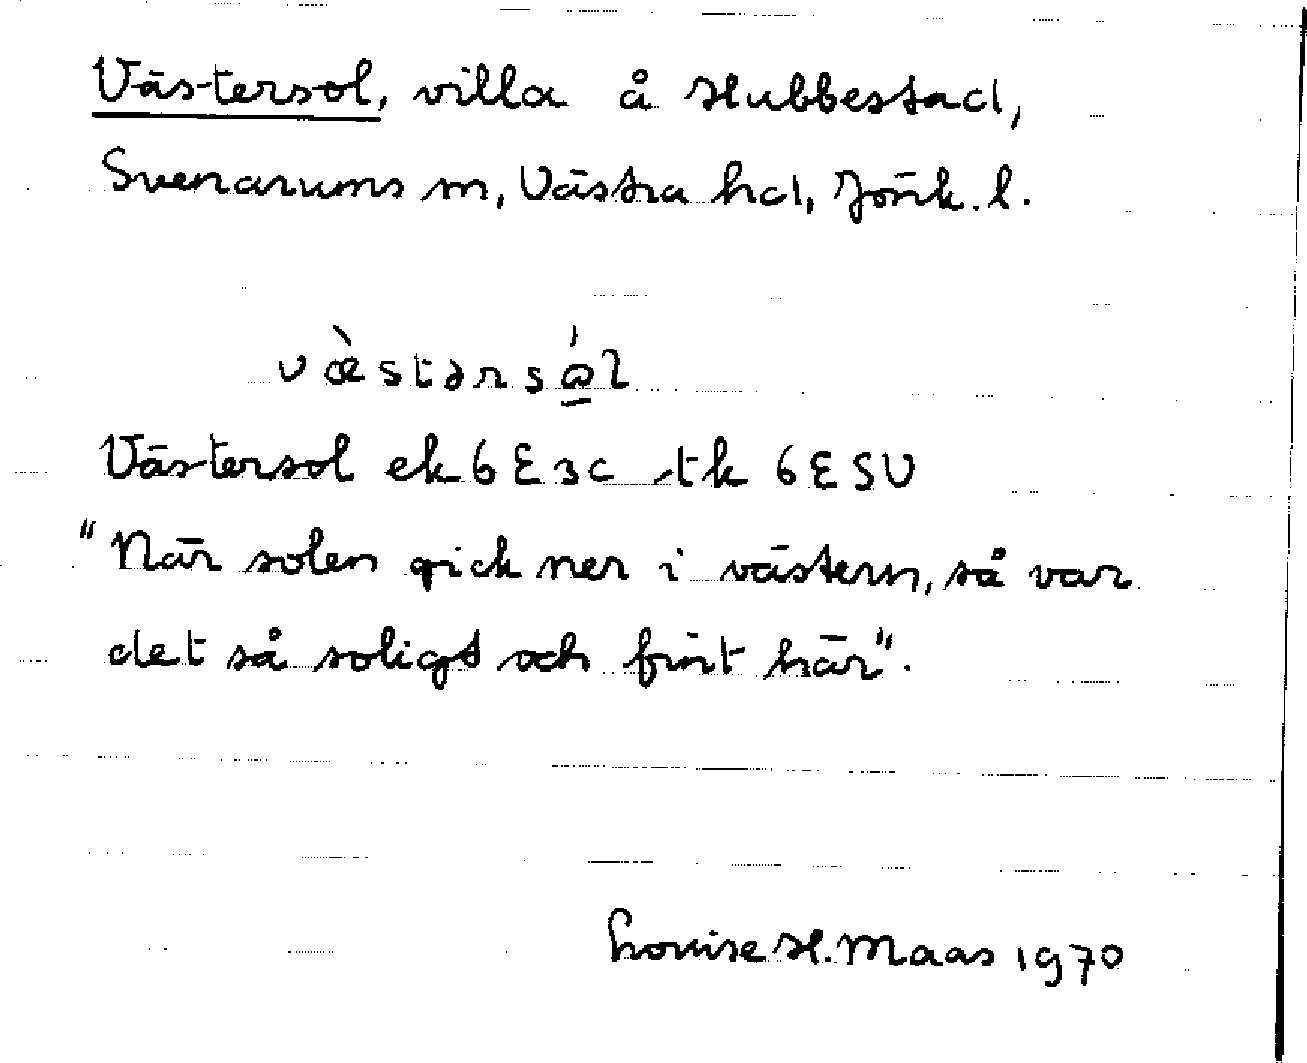 Västersol, villa å Hubbestad,
Svenarums sn, Västra hd, Jönk. l.
væ̀stərsώ̲l
Västersol ek 6E3c tk 6ESV
"När solen gick ner i västern, så var
det så soligt och fint här".
Louise H. Maas 1970